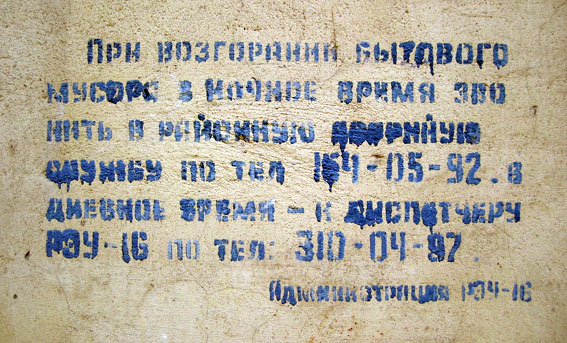 При возгорании бытового
мусора в ночное время зво
нить в районную аварийную
службу по тел 164-05-92. в
дневное время – к диспетчеру
РЭУ-16 по тел: 310-04-97.
Администрация РЭУ-16